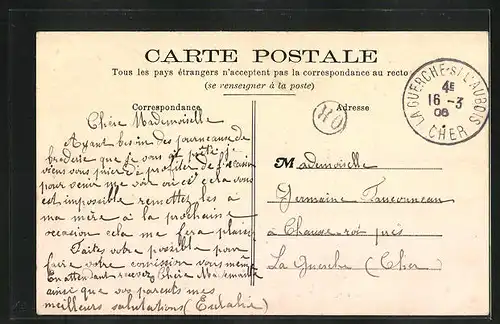 CARTE POSTALE
Tous les pays étrangers n'acceptent pas la correspondance au recto
(se renseigner à la poste)
Correspondance
Adresse
LA GUERCHE-S-L'AUBOIS
4E
16 - 3
06
CHER
OR
Chère Mademoiselle
Ayant besoin des journeaux de
broderie que je vous ai
viens vous prier de profiter de l'occasion
pour venir me voir ou si cela vous
est impossible remettez les à
ma mère à la prochaine
occasion cela me fera plaisir
Faites votre possible pour
faire votre comission vous même
En attendant recevez Chère Mademoiselle
ainsi que vos parents mes
meilleurs salutations (Eulalie)
Mademoiselle
Germaine
à près
La Guerche (Cher)